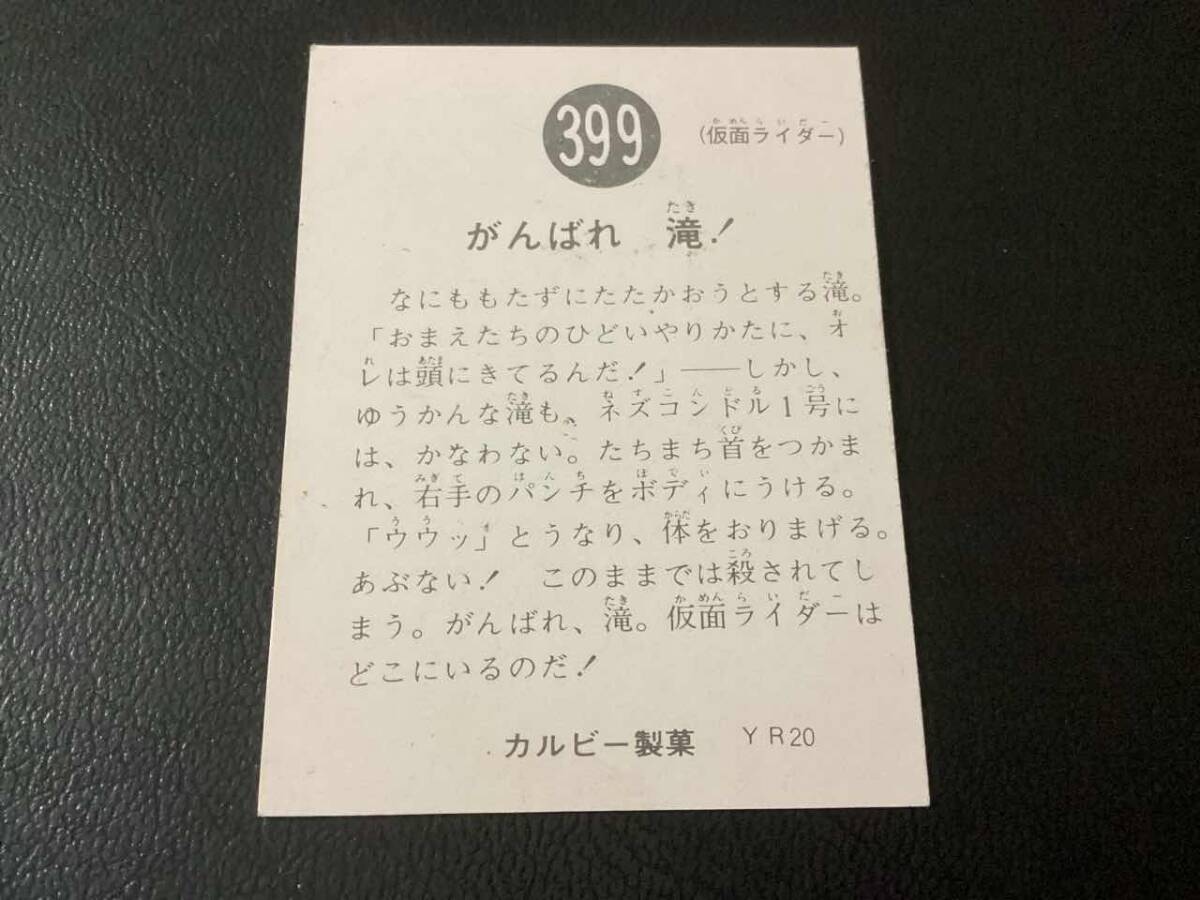 399
(仮面ライダー)
がんばれ　滝!
なにももたずにたたかおうとする滝。
「おまえたちのひどいやりかたに、オ
レは頭にきてるんだ!」――しかし、
ゆうかんな滝も、ネズコンドル1号に
は、かなわない。たちまち首をつかま
れ、右手のパンチをボディにうける。
「ウウッ」とうなり、体をおりまげる。
あぶない!　このままでは殺されてし
まう。がんばれ、滝。仮面ライダーは
どこにいるのだ!
カルビー製菓　YR20